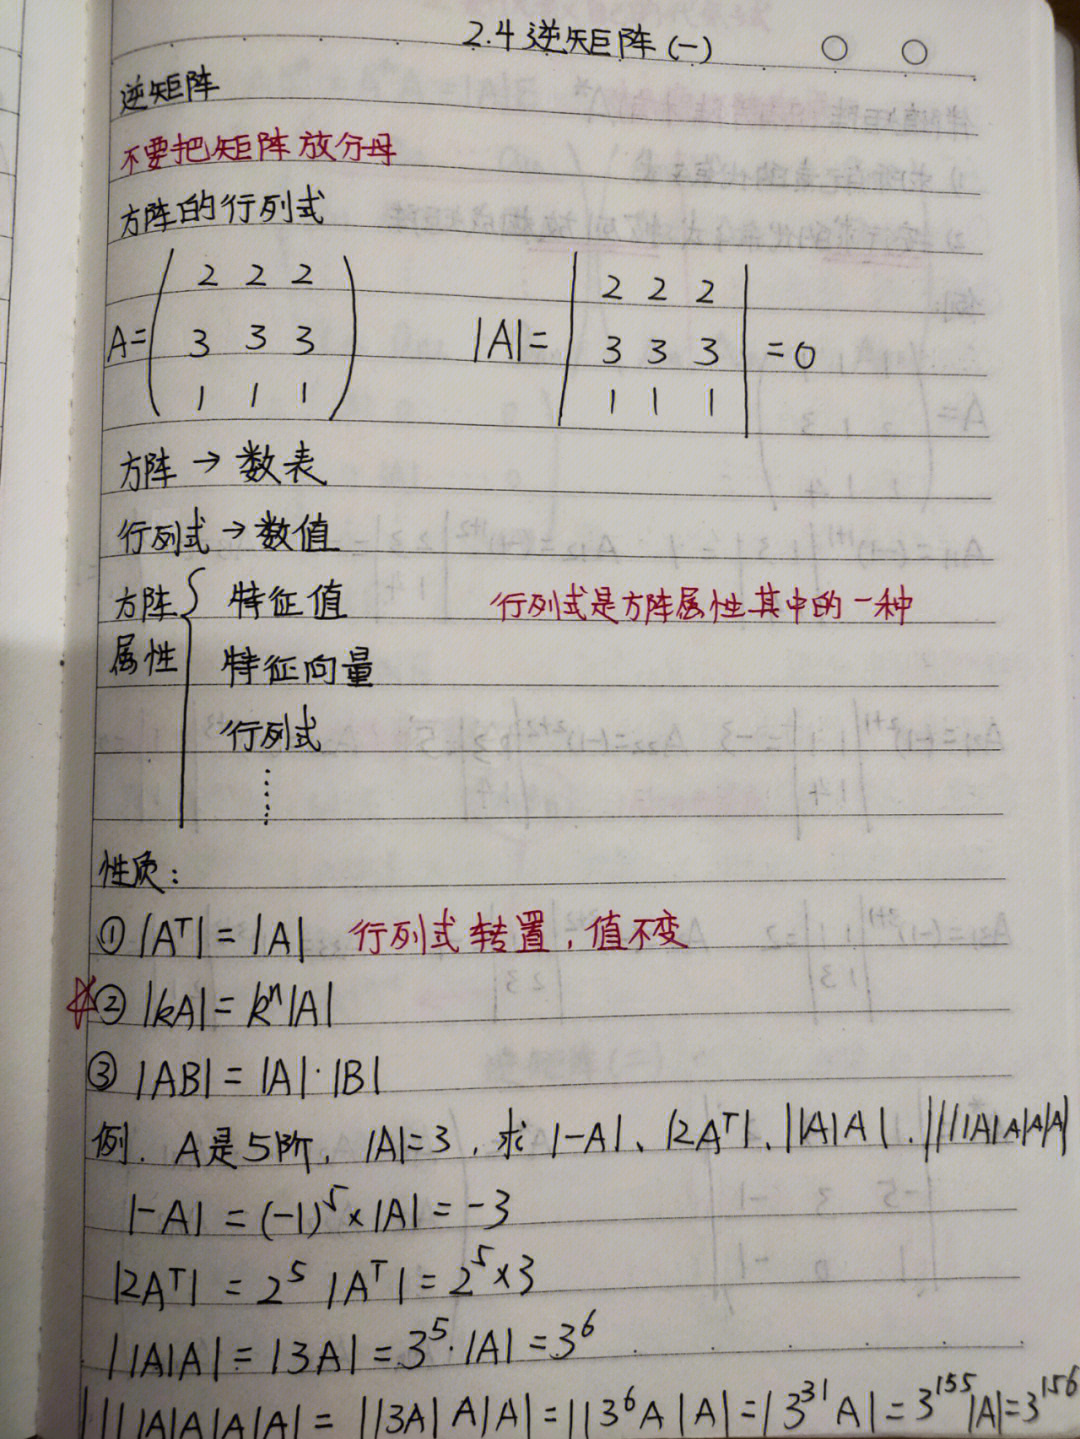 2.4 逆矩阵(一)
逆矩阵
不要把矩阵放分母
方阵的行列式
A=(2 2 2
3 3 3
1 1 1)
|A|=|2 2 2
3 3 3
1 1 1|=0
方阵→数表
行列式→数值
方阵属性{特征值
特征向量
行列式
⋮
行列式是方阵属性其中的一种
性质:
①|Aᵀ|=|A| 行列式转置,值不变
☆②|kA|=kⁿ|A|
③|AB|=|A|·|B|
例. A是5阶, |A|=3, 求|-A|、|2Aᵀ|、||A|A|.||||A|A|A|A|
|-A|=(-1)⁵×|A|=-3
|2Aᵀ|=2⁵|Aᵀ|=2⁵×3
||A|A|=|3A|=3⁵·|A|=3⁶
||||A|A|A|A|=||3A|A|A|=||3⁶A|A|=|3³¹A|=3¹⁵⁵|A|=3¹⁵⁶